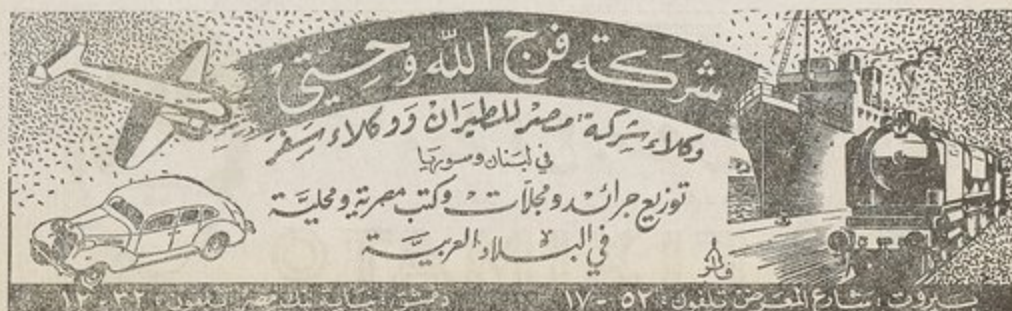 شركة فرج الله وحتّي
وكلاء شركة: مصر للطيران ووكلاء سفر
في لبنان وسوريا
توزيع جرائد ومجلات وكتب مصرية ومحلية
في البلاد العربية
بيروت: شارع المعرض تلفون: ٥٢-١٧ دمشق: بناية بنك مصر تلفون: ٣٢-١٢